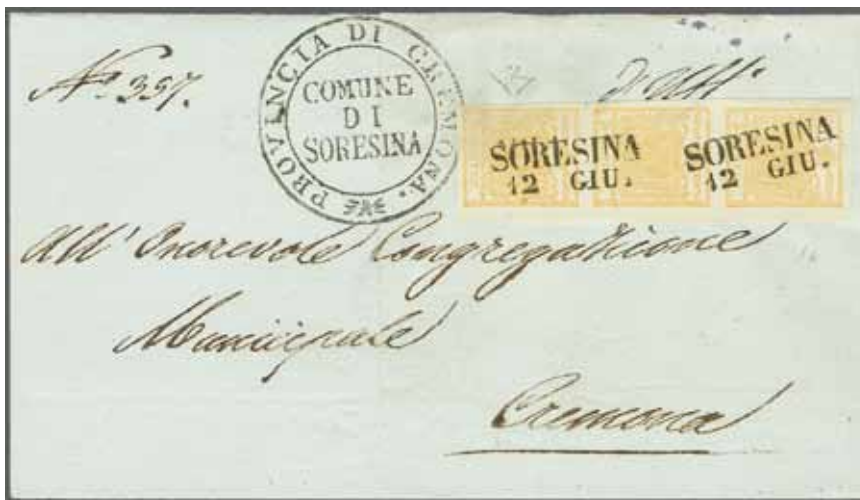 N.º 357.
PROVINCIA DI CREMONA.
COMUNE
DI
SORESINA
d'Uff.º
SORESINA
12 GIU.
SORESINA
12 GIU.
All' Onorevole Congregazione
Municipale
Cremona